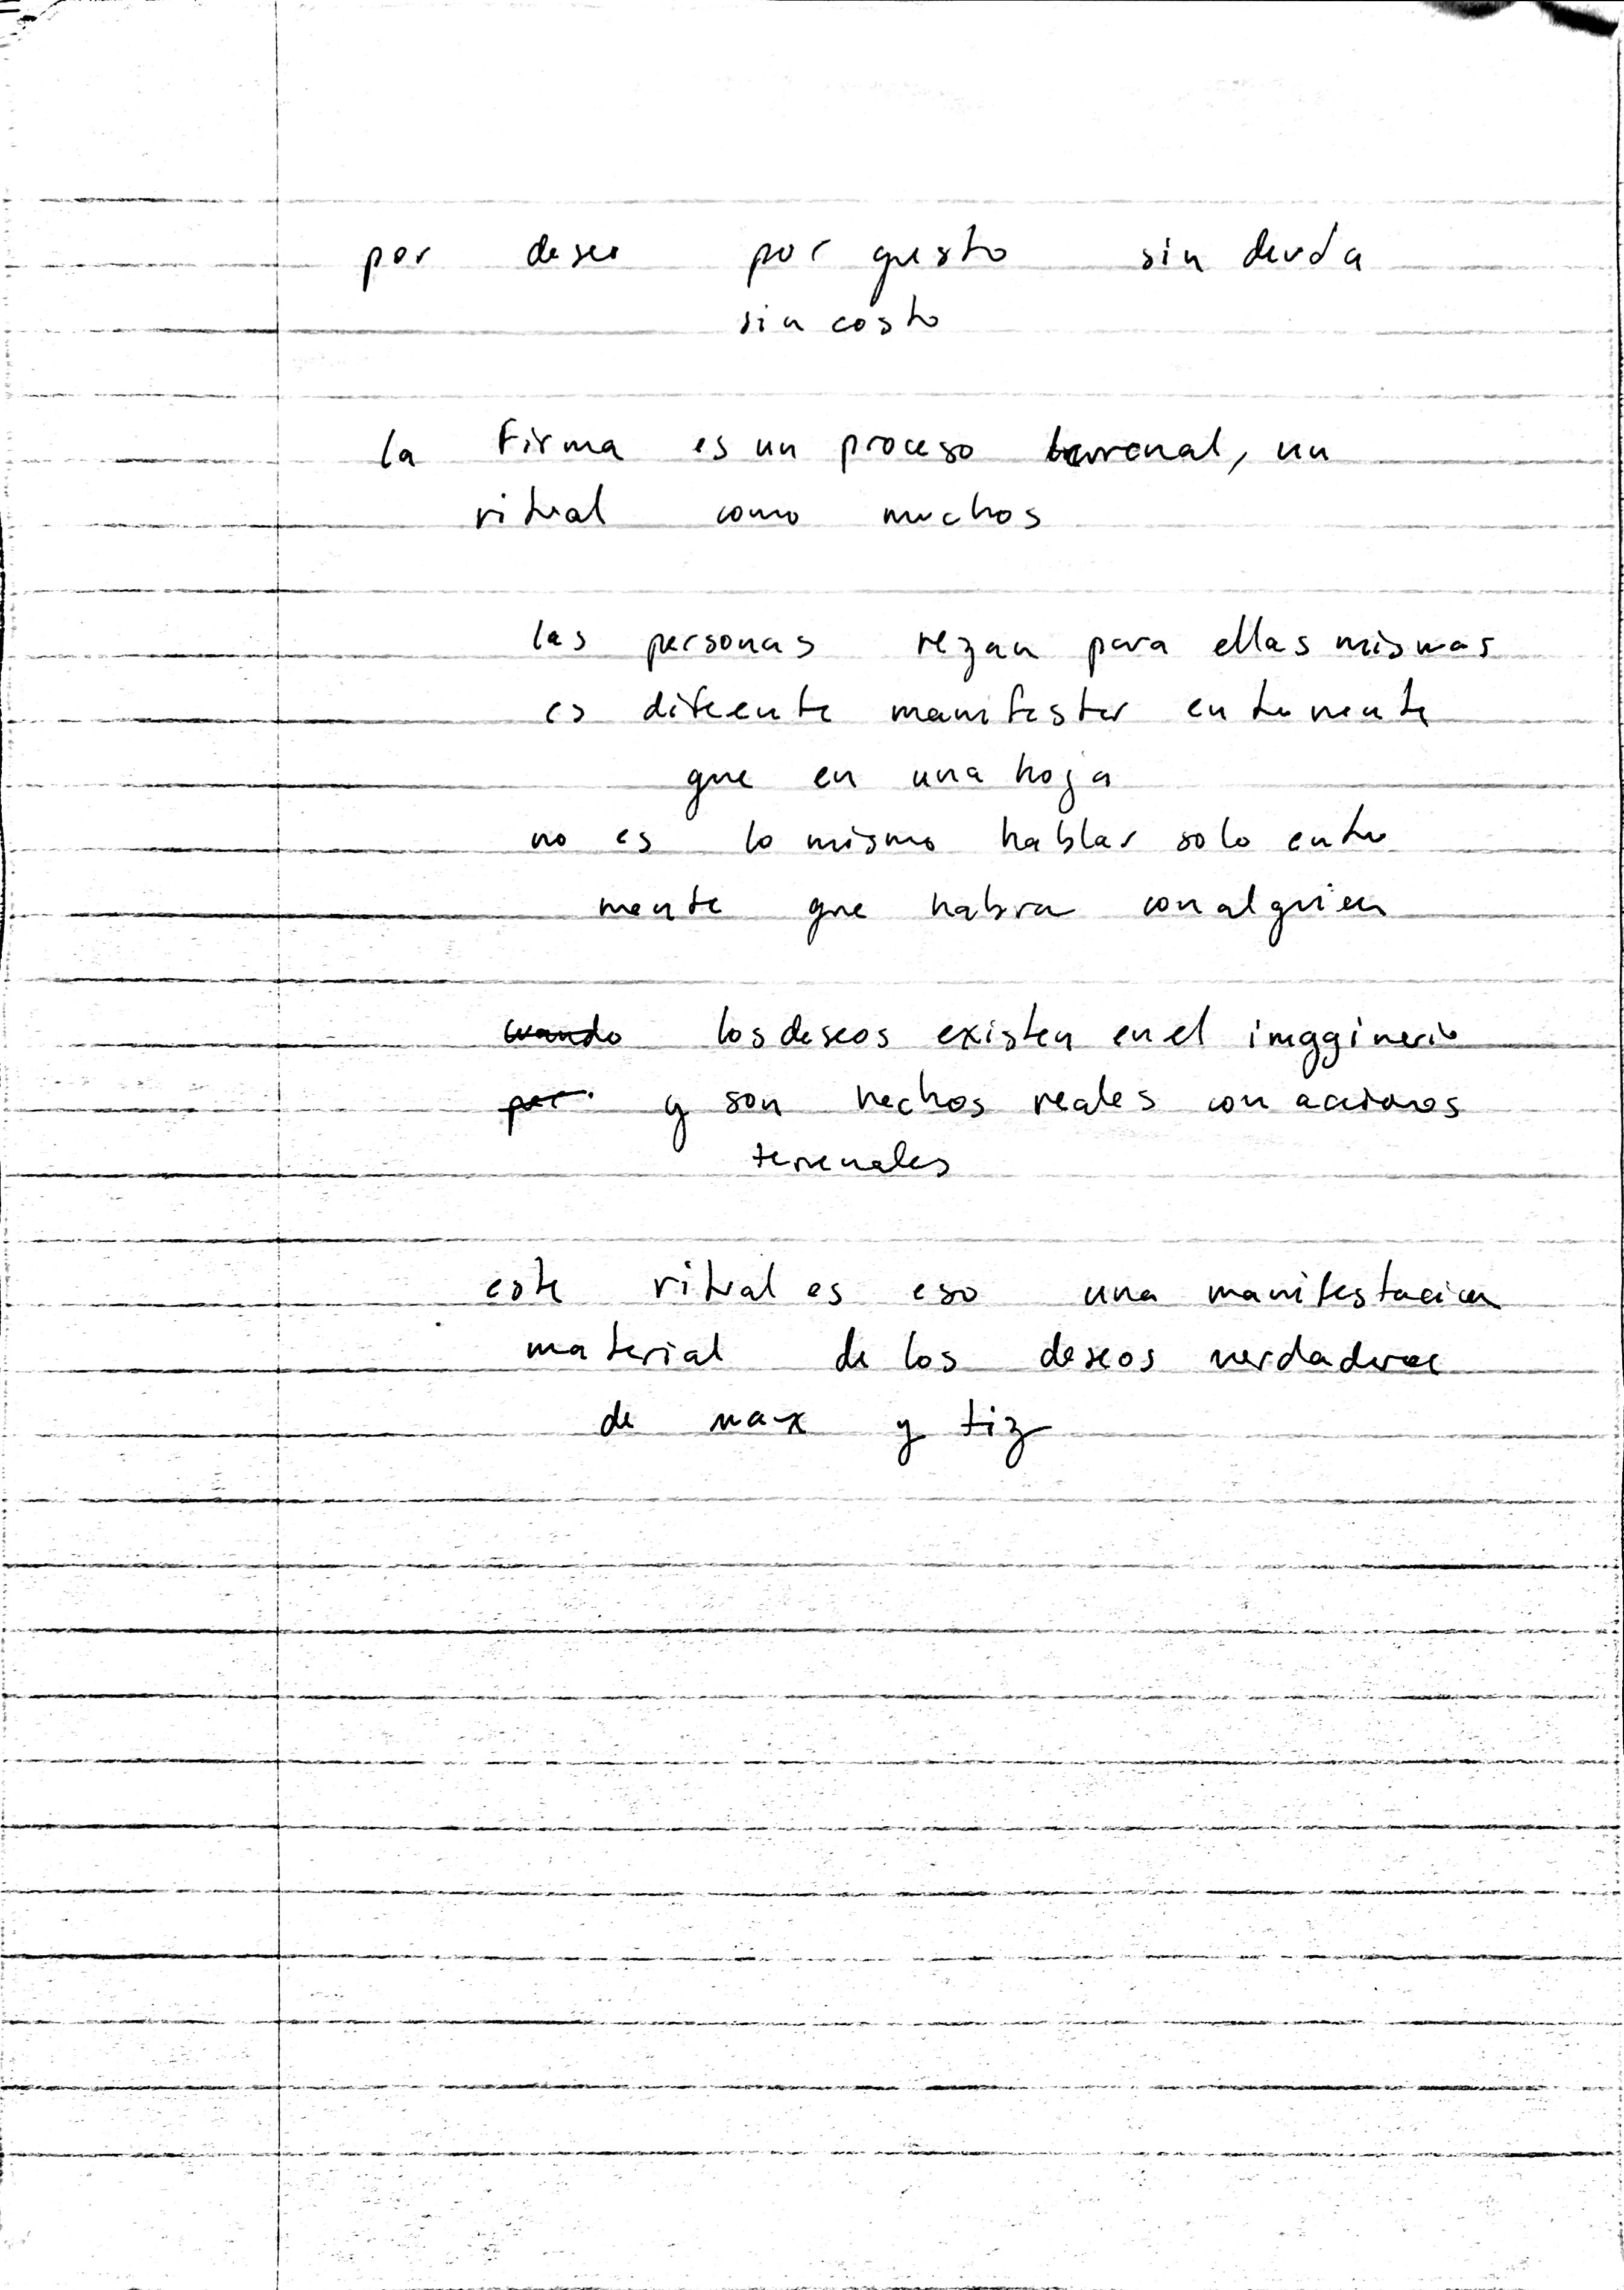 por deseo por gusto sin deuda
sin costo
la Firma es un proceso terrenal, un
ritual como muchos
las personas rezan para ellas mismas
es difeente manifestar en tu mente
que en una hoja
no es lo mismo hablar solo en tu
mente que habra con alguien
cuando los deseos existen en el imagginerio
por y son hechos reales con acciones
terrenales
este ritual es eso una manifestacion
material de los deseos verdaderos
de max y tiz